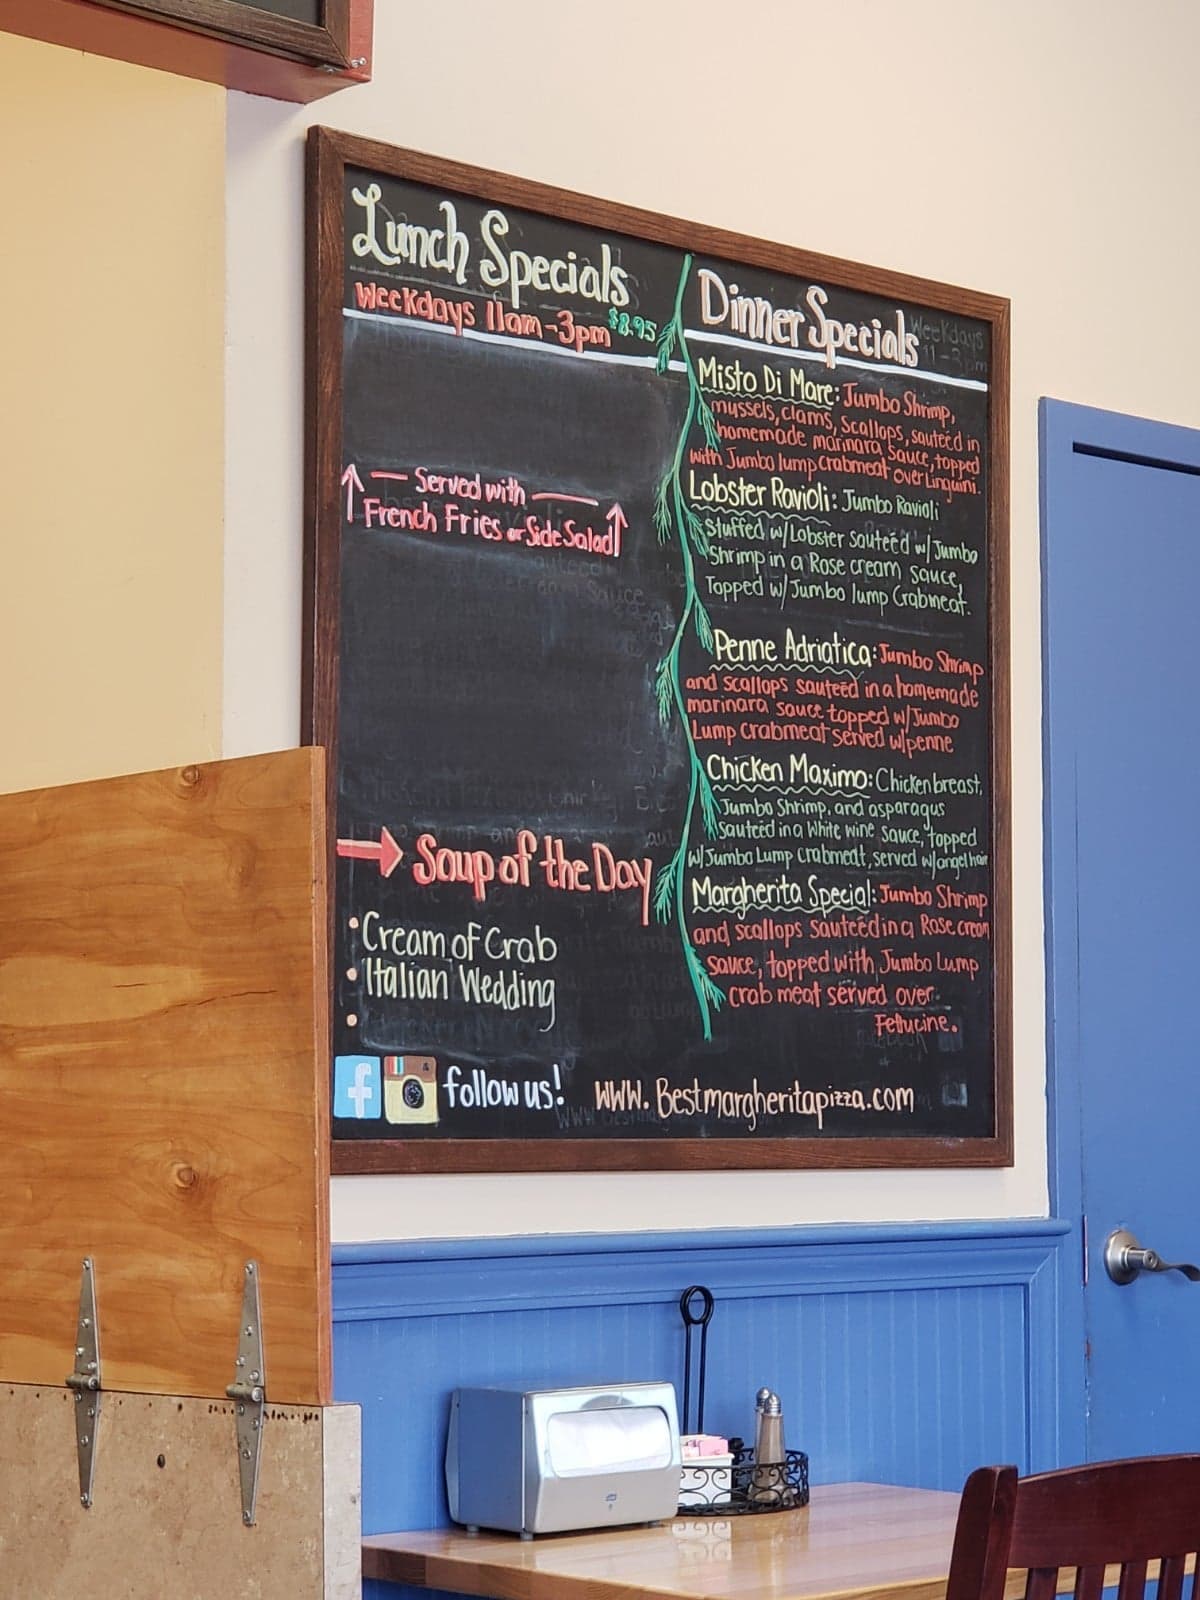 Lunch Specials
Weekdays 11am-3pm $8.95
Served with
French Fries or Side Salad
Soup of the Day
• Cream of Crab
• Italian Wedding
•
follow us!
Dinner Specials
Weekdays
11-3pm
Misto Di Mare: Jumbo Shrimp,
mussels, clams, scallops, sauteéd in
homemade marinara sauce, topped
with Jumbo lump crabmeat over Linguini.
Lobster Ravioli: Jumbo Ravioli
stuffed w/Lobster sauteéd w/Jumbo
Shrimp in a Rose cream sauce,
Topped w/Jumbo lump Crabmeat.
Penne Adriatica: Jumbo Shrimp
and scallops sauteéd in a homemade
marinara sauce topped w/Jumbo
Lump crabmeat served w/penne
Chicken Maximo: Chicken breast,
Jumbo Shrimp, and asparagus
Sauteéd in a White wine Sauce, topped
w/Jumbo Lump crabmeat, served w/angel hair
Margherita Special: Jumbo Shrimp
and scallops Sauteéd in a Rose cream
sauce, topped with Jumbo Lump
crab meat served over
Fettucine.
www.Bestmargheritapizza.com